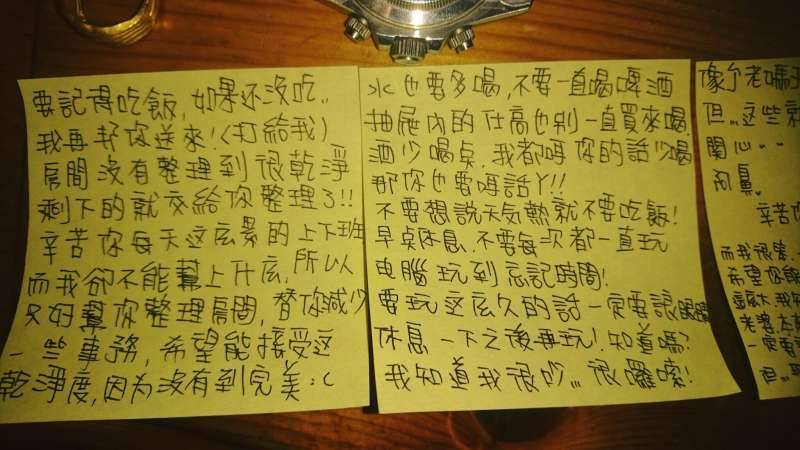 要記得吃飯，如果还没吃..
我再幫你送來！(打給我)
房間沒有整理到很乾淨
剩下的就交給你整理了!!
辛苦你每天这広累的上下班
而我卻不能幫上什広，所以
只好幫你整理房間，替你減少
一些事務，希望能接受这
乾淨度，因为沒有到完美:(
水也要多喝，不要一直喝啤酒
抽屉內的仕高也别一直買來喝
酒少喝点，我都听你的話少喝
那你也要听話丫!!
不要想說天氣熱就不要吃飯!
早点休息，不要每次都一直玩
电腦玩到忘記時間!
要玩这広久的話一定要讓眼睛
休息一下之後再玩!知道嗎?
我知道我很吵,,,很囉嗦!
像个老嗎
但..这些
関心..
辛苦
而我很笨
希望你
老婆
一定要
但...